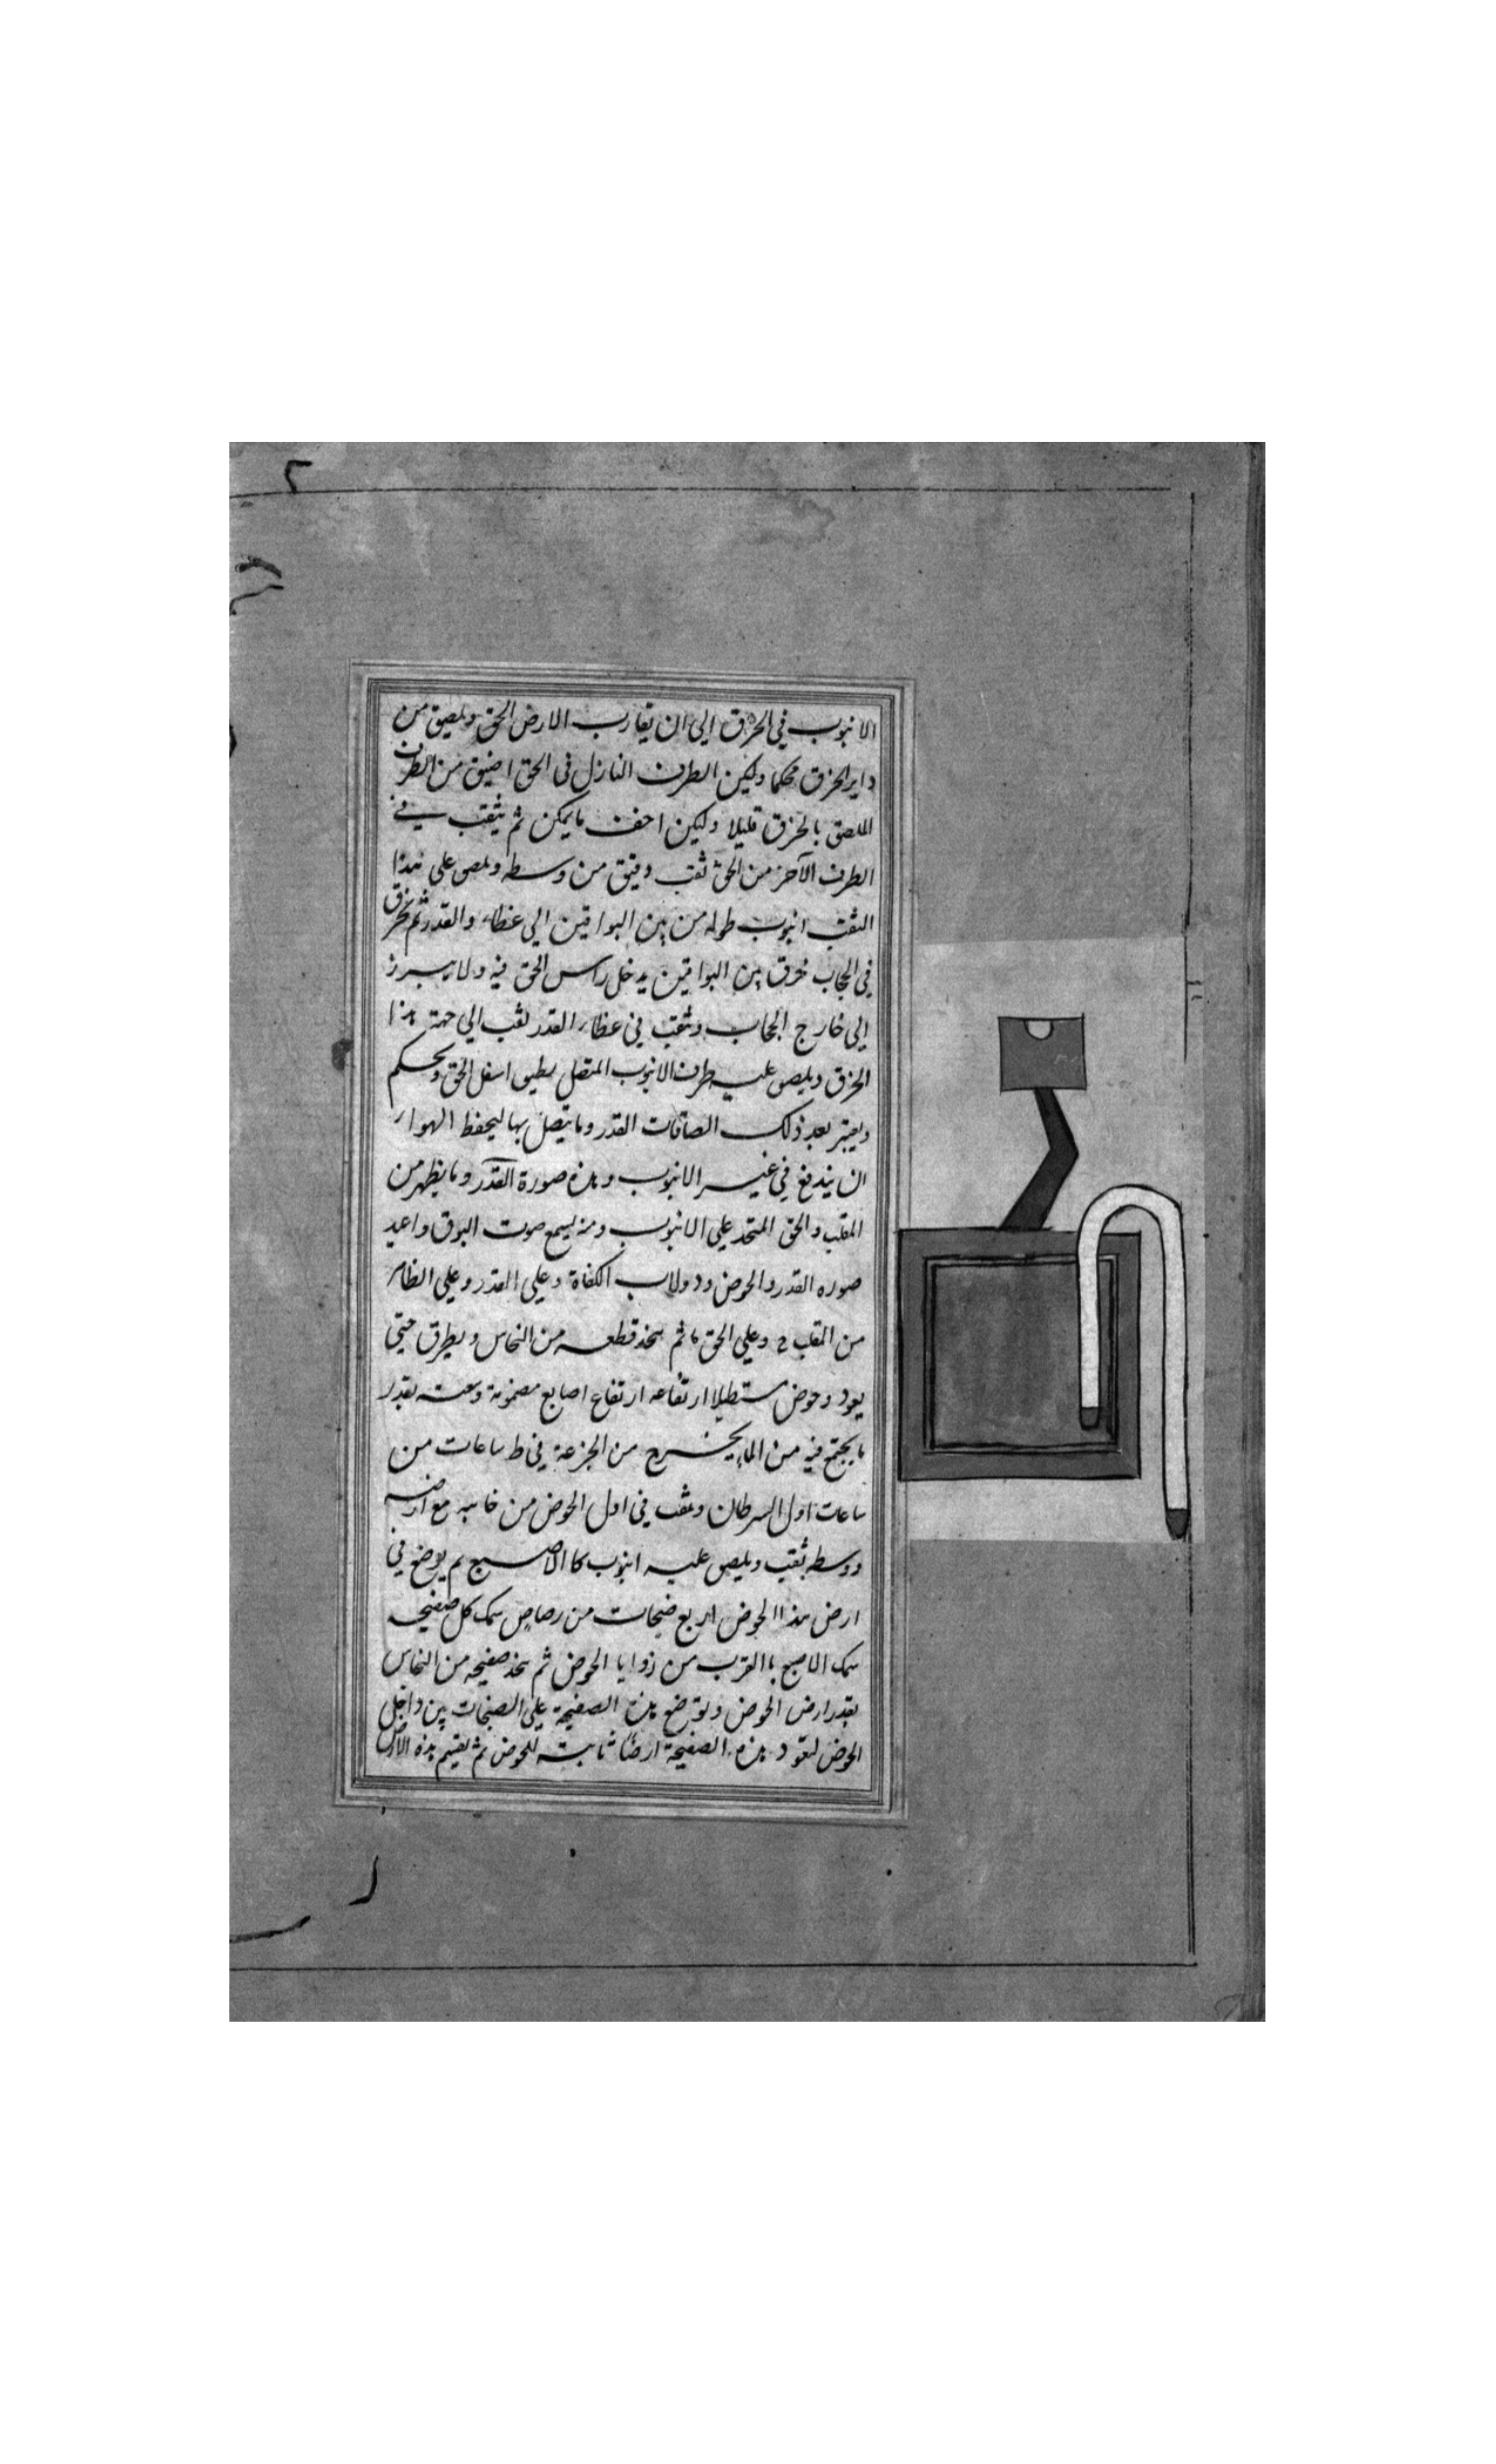 الانبوب في الخرق الي ان يقارب الارض الحق ويلصق من
داير الخرق محكما وليكن الطرف النازل في الحق اضيق من الطرف
الملصق بالخرق قليلا وليكن اخف ما يمكن ثم يثقب في
الطرف الآخر من الحق ثقب دقيق من وسطه ويلصق علي هذا
الثقب انبوب طوله من بين البواقين الي غطاء والقدر ثم يخرق
في الحجاب خرق بين البواقين يدخل راس الحق فيه ولا يبرز
الي خارج الحجاب ويثقب في غطاء القدر ثقب الي جهة هذا
الخرق ويلصق عليه طرف الانبوب المتصل بطبق اسفل الحق ويحكم
ويعتبر بعد ذلك الصاقات القدر وما يتصل بها ليحفظ الهواء
ان يندفع في غير الانبوب وهذه صورة القدر وما يظهر من
المقلب والحق المتخذ علي الانبوب ومنه يسمع صوت البوق واعيد
صوره القدر والحوض ودولاب الكفاة وعلي القدر وعلي الظاهر
من المقلب وعلي الحق ثم يتخذ قطعه من النحاس ويطرق حتي
يعود وحوض مستطيلا ارتفاعه ارتفاع اصابع مضمونة وسعته بقدر
ما يجتمع فيه من الماء يخرج من الجزعة في ط ساعات من
ساعات اول السرطان ويثقب في اول الحوض من جانبه مع ارضه
ووسطه ثقب ويلصق عليه انبوب كالاصبع ثم يوضع في
ارض هذا الحوض اربع صنجات من رصاص سمك كل صفيحه
سمك الاصبع باالقرب من زوايا الحوض ثم يتخذ صفيحه من النحاس
بقدر ارض الحوض وتوضع هذه الصفيحة علي الصنجات بين داخل
الحوض لتعود هذه الصفيحة ارضا ثابته للحوض ثم يقسم هذه الارض